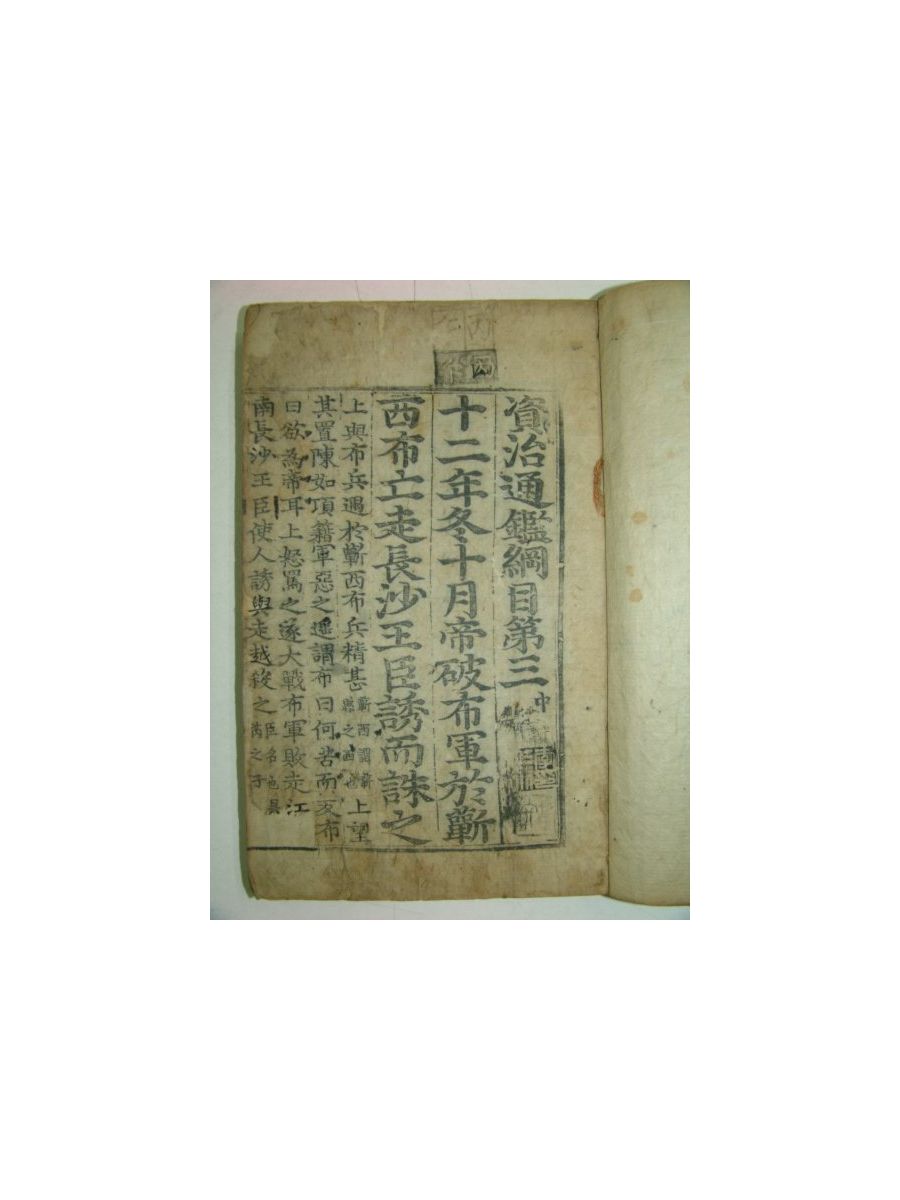 資治通鑑綱目第三中
十二年冬十月帝破布軍於蘄
西布亡走長沙王臣誘而誅之
上與布兵遇於蘄西布兵精甚蘄西謂蘄縣之西也上望
其置陳如項籍軍惡之遥謂布曰何苦而反布
曰欲為帝耳上怒罵之遂大戰布軍敗走江
南長沙王臣使人誘與走越殺之臣名也吳芮之子